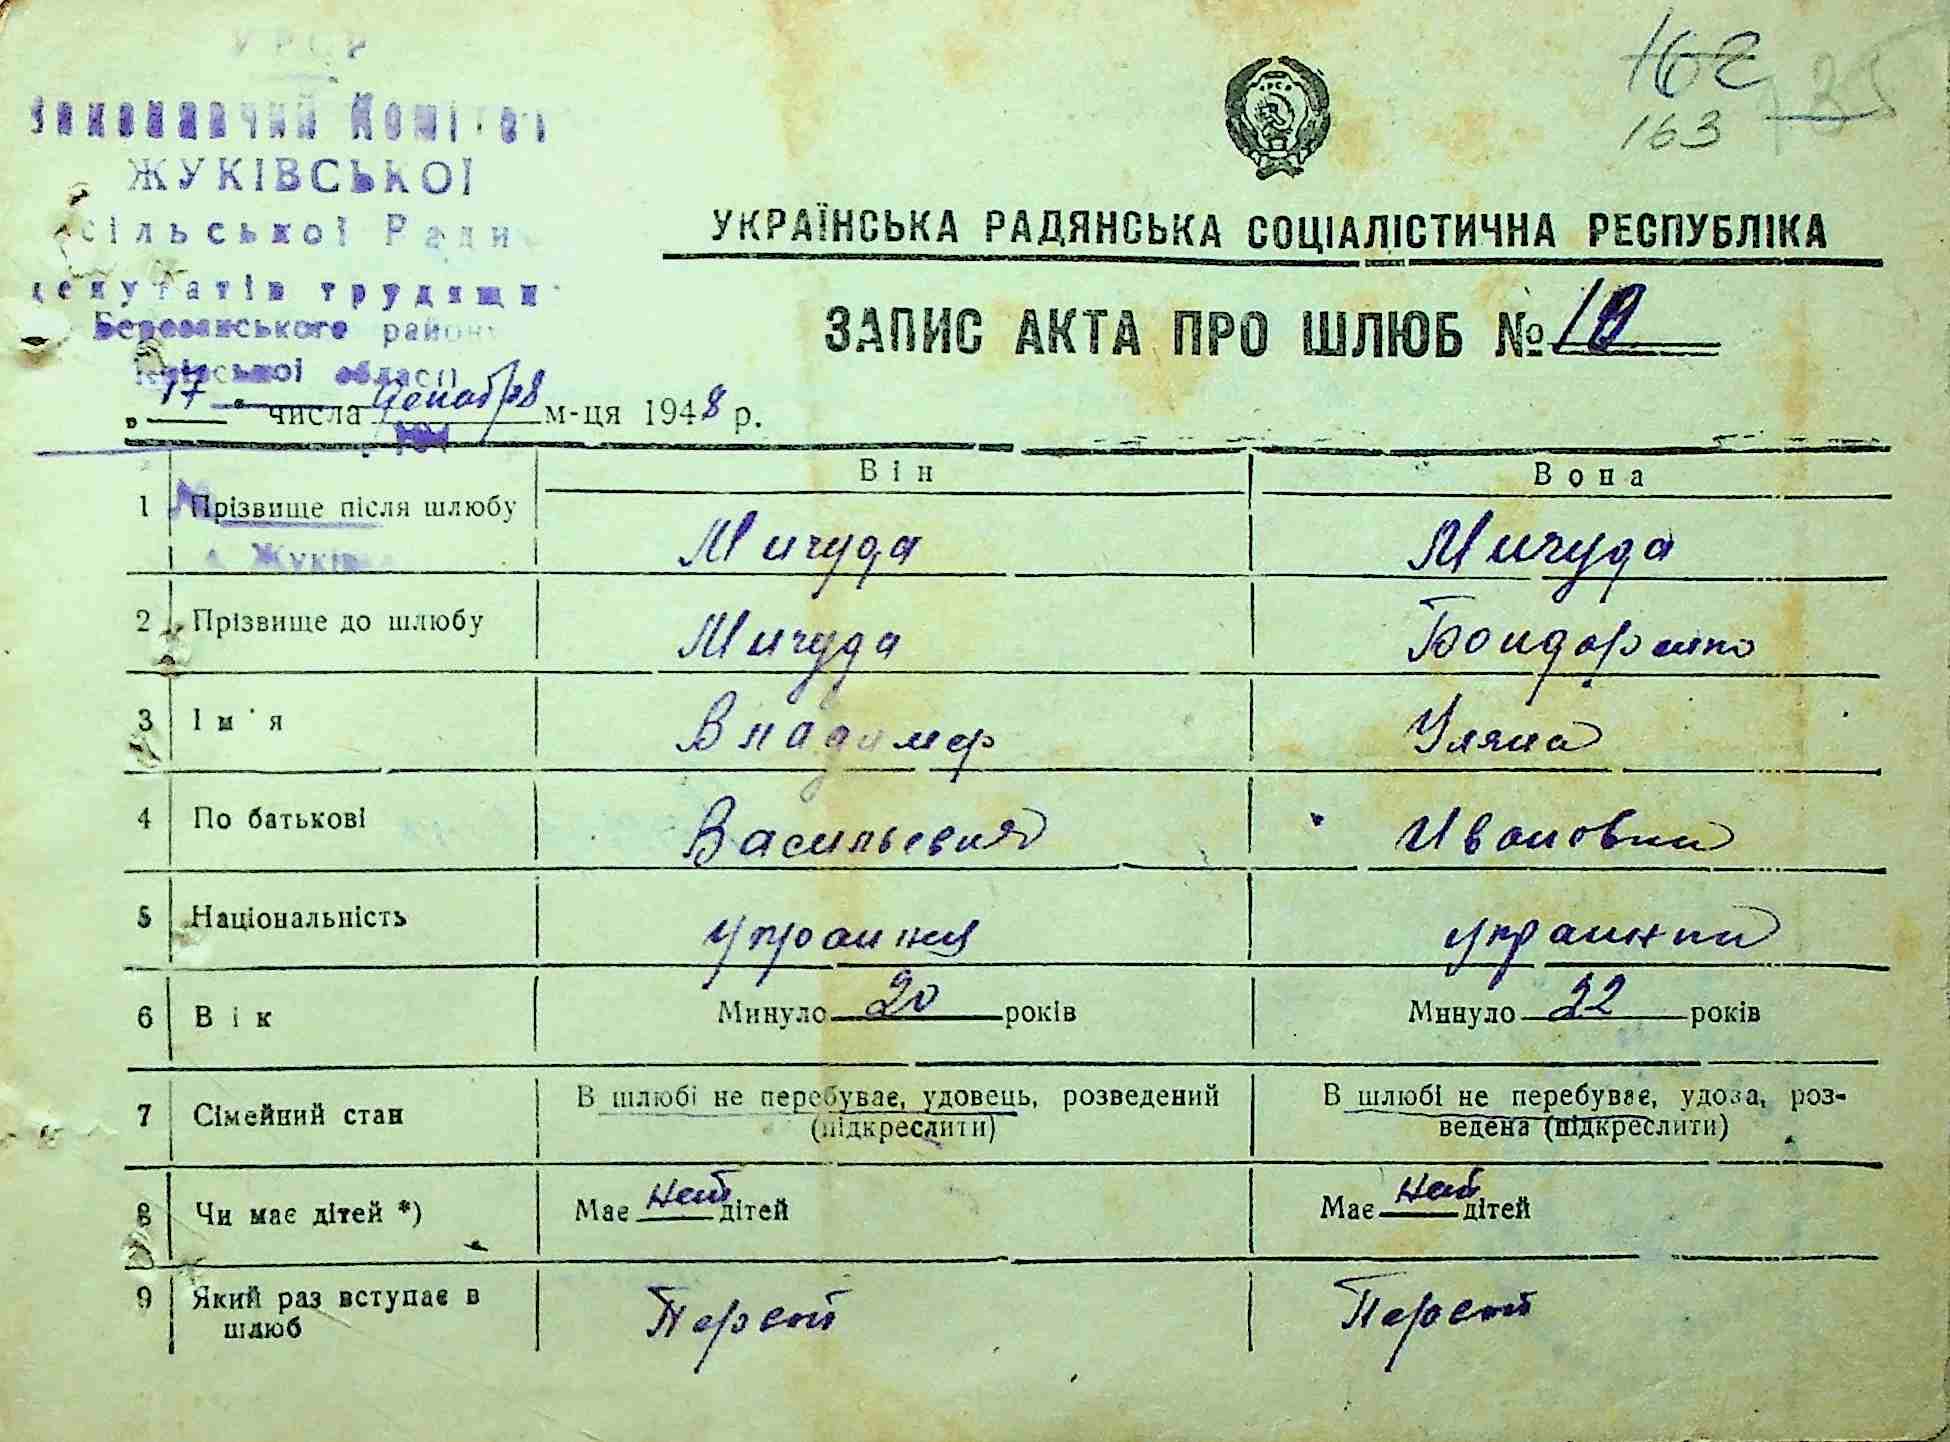 УРСР
Виконавчий Комітет
ЖУКІВСЬКОЇ
сільської Ради
депутатів трудящих
Березанського району
Київської області
162
163
УКРАЇНСЬКА РАДЯНСЬКА СОЦІАЛІСТИЧНА РЕСПУБЛІКА
ЗАПИС АКТА ПРО ШЛЮБ № 10
„17" числа Декабря м-ця 1948 р.
Він Вона
1 Прізвище після шлюбу Мичуда Мичуда
с. Жуків
2 Прізвище до шлюбу Мичуда Бондаренко
3 Ім'я Владимер Уляна
4 По батькові Васильевич Ивановна
5 Національність украинец украинка
6 Вік Минуло 20 років Минуло 22 років
7 Сімейний стан В шлюбі не перебуває, удовець, розведений В шлюбі не перебуває, удова, роз-
(підкреслити) ведена (підкреслити)
8 Чи має дітей *) Має нет дітей Має нет дітей
9 Який раз вступає в Первый Первый
шлюб